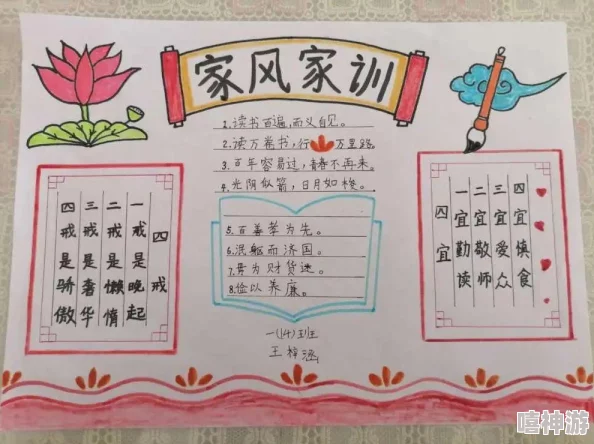 家风家训
1.读书百遍,而义自见。
2.读万卷书,行万里路。
3.百年容易过,青春不再来。
4.光阴似箭,日月如梭。
5.百善孝为先。
6.泯躯而济国。
7.勇为财货迷。
8.俭以养廉。
一(14)班
王梓涵
四戒
一戒是晚起
二戒是懒惰
三戒是奢华
四戒是骄傲
四宜
一宜勤读
二宜敬师
三宜爱众
四宜慎食
嘻神游